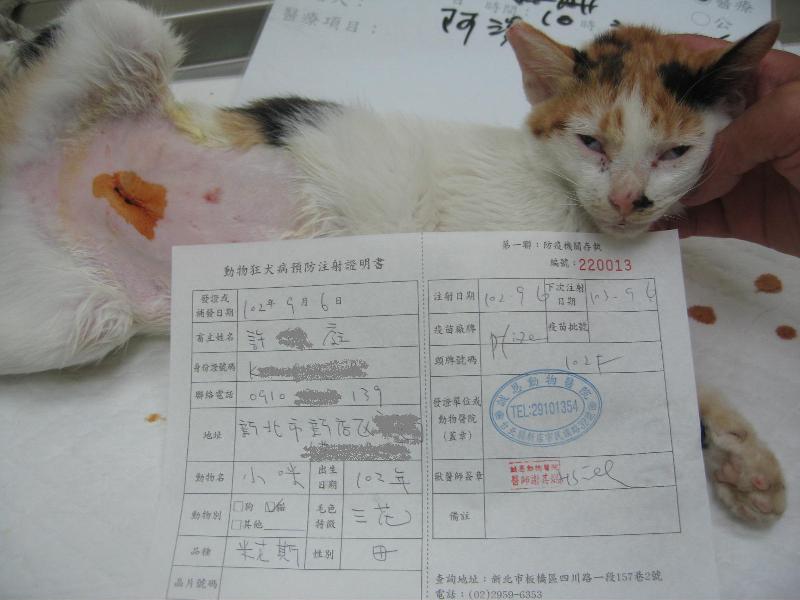 醫療項目：
時間：
醫療
動物狂犬病預防注射證明書
發證或補發日期 102年9月6日
畜主姓名 許
身份證號碼 K
聯絡電話 0910 139
地址 新北市新店區
動物名 小咪 出生日期 102年
動物別 □狗 ☑貓 □其他 毛色特徵 三花
品種 米克斯 性別 母
晶片號碼
第一聯：防疫機關存執
編號：220013
注射日期 102-9-6 下次注射日期 103-9-6
疫苗廠牌 Pfizer 疫苗批號
頸牌號碼 102F
發證單位或動物醫院(蓋章) 誠恩動物醫院 TEL:29101354
獸醫師簽章 誠恩動物醫院
備註
查詢地址：新北市板橋區四川路一段157巷2號
電話：(02)2959-6353